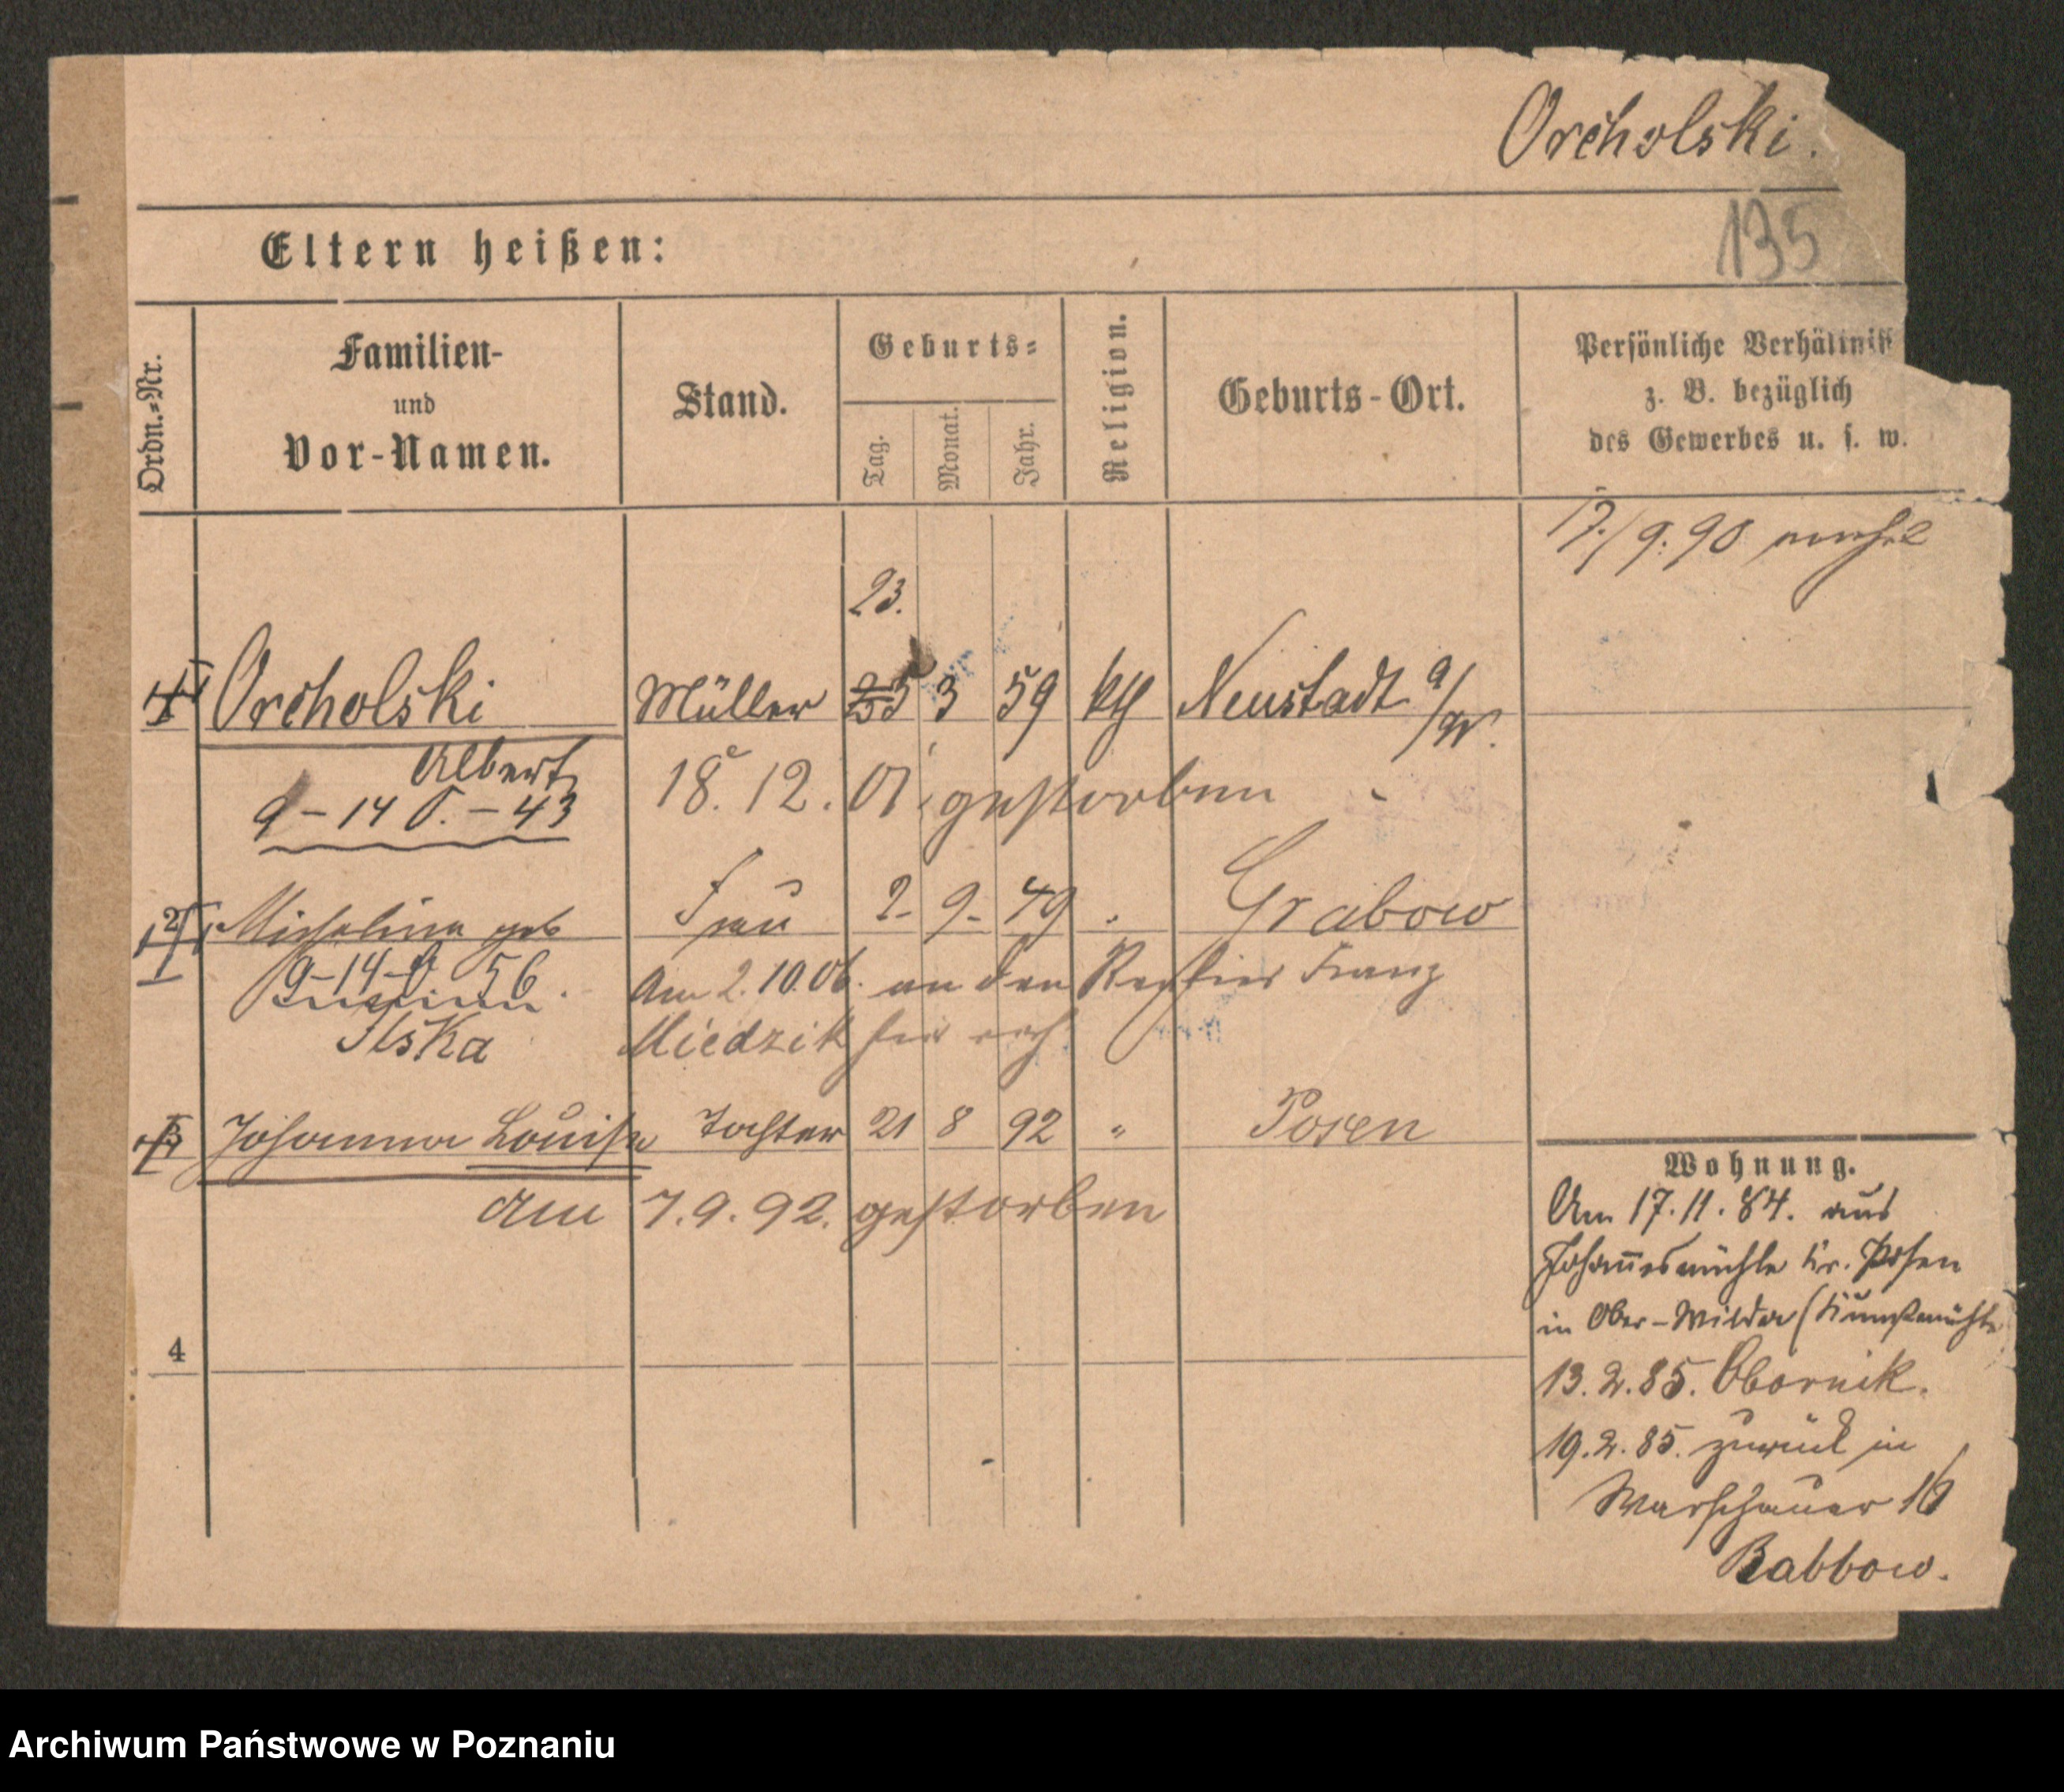 Orcholski.
135
Eltern heißen:
Ordn.=Nr.
Familien-
und
Vor-Namen.
Stand.
Geburts=
Tag.
Monat.
Jahr.
Religion.
Geburts-Ort.
Persönliche Verhältniss
z. B. bezüglich
des Gewerbes u. s. w.
17./9.90
23.
1 Orcholski Müller 25 3 59 kth Neustadt a/W.
Albert 18. 12. 01. gestorben
9-14 O.-43
2 Michalina geb Frau 2- 9- 49 " Grabow
9-14-O 56 Am 2.10.06. an den Franz
Ilska Miedzik
3 Johanna Louise Tochter 21 8 92 " Posen
am 7.9.92. gestorben
4
Wohnung.
Am 17.11.84. aus
Johannesmühle Kr. Posen
in Ober-Wilda (Kunstmühle
13.2.85. Obornik.
19.2.85. zurück in
Warschauer 16
Babbow.
Archiwum Państwowe w Poznaniu